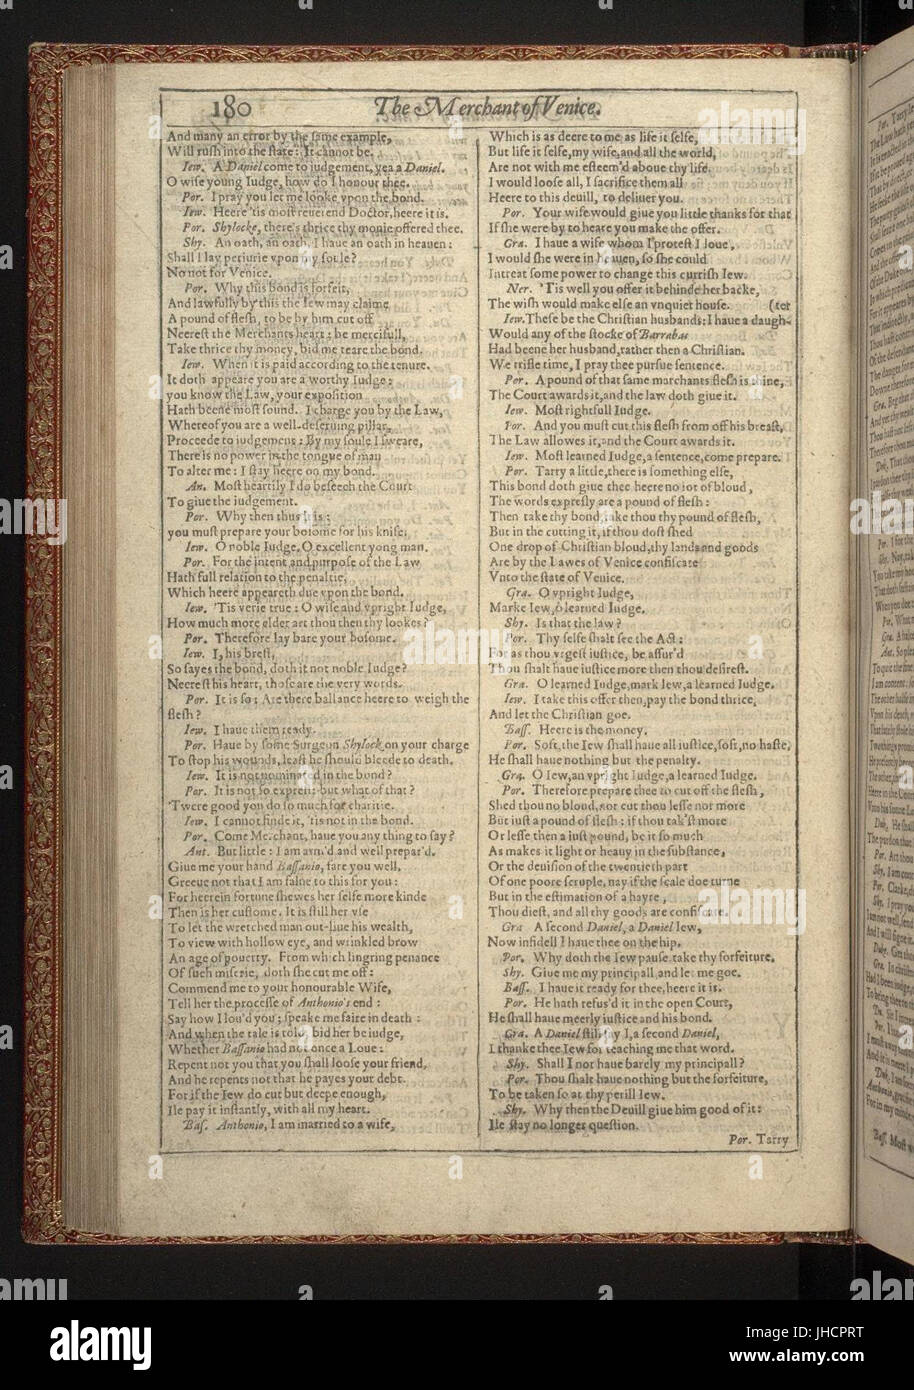 180
The Merchant of Venice.
And many an error by the same example,
Will rush into the state: It cannot be.
Iew. A Daniel come to iudgement, yea a Daniel.
O wise young Iudge, how do I honour thee.
Por. I pray you let me looke vpon the bond.
Iew. Heere 'tis most reuerend Doctor, heere it is.
Por. Shylocke, there's thrice thy monie offered thee.
Shy. An oath, an oath, I haue an oath in heauen:
Shall I lay periurie vpon my soule?
No not for Venice.
Por. Why this bond is forfeit,
And lawfully by this the Iew may claime
A pound of flesh, to be by him cut off
Neerest the Merchants heart: be mercifull,
Take thrice thy money, bid me teare the bond.
Iew. When it is paid according to the tenure.
It doth appeare you are a worthy Iudge:
you know the Law, your exposition
Hath beene most sound. I charge you by the Law,
Whereof you are a well-deseruing pillar,
Proceede to iudgement: By my soule I sweare,
There is no power in the tongue of man
To alter me: I stay heere on my bond.
An. Most heartily I do beseech the Court
To giue the iudgement.
Por. Why then thus it is:
you must prepare your bosome for his knife.
Iew. O noble Iudge, O excellent yong man.
Por. For the intent and purpose of the Law
Hath full relation to the penaltie,
Which heere appeareth due vpon the bond.
Iew. 'Tis verie true: O wise and vpright Iudge,
How much more elder art thou then thy lookes?
Por. Therefore lay bare your bosome.
Iew. I, his brest,
So sayes the bond, doth it not noble Iudge?
Neerest his heart, those are the very words.
Por. It is so: Are there ballance heere to weigh the
flesh?
Iew. I haue them ready.
Por. Haue by some Surgeon Shylock on your charge
To stop his wounds, least he should bleede to death.
Iew. It is not nominated in the bond?
Por. It is not so exprest: but what of that?
'Twere good you do so much for charitie.
Iew. I cannot finde it, 'tis not in the bond.
Por. Come Merchant, haue you any thing to say?
Ant. But little: I am arm'd and well prepar'd.
Giue me your hand Bassanio, fare you well,
Greeue not that I am falne to this for you:
For heerein fortune shewes her selfe more kinde
Then is her custome. It is still her vse
To let the wretched man out-liue his wealth,
To view with hollow eye, and wrinkled brow
An age of pouerty. From which lingring penance
Of such miserie, doth she cut me off:
Commend me to your honourable Wife,
Tell her the processe of Anthonio's end:
Say how I lou'd you; speake me faire in death:
And when the tale is told, bid her be iudge,
Whether Bassanio had not once a Loue:
Repent not you that you shall loose your friend,
And he repents not that he payes your debt.
For if the Iew do cut but deepe enough,
Ile pay it instantly, with all my heart.
Bas. Anthonio, I am married to a wife,
Which is as deere to me as life it selfe,
But life it selfe, my wife, and all the world,
Are not with me esteem'd aboue thy life.
I would loose all, I sacrifice them all
Heere to this deuill, to deliuer you.
Por. Your wife would giue you little thanks for that
If she were by to heare you make the offer.
Gra. I haue a wife whom I protest I loue,
I would she were in heauen, so she could
Intreat some power to change this currish Iew.
Ner. 'Tis well you offer it behinde her backe,
The wish would make else an vnquiet house. (ter
Iew. These be the Christian husbands: I haue a daugh-
Would any of the stocke of Barrabas
Had beene her husband, rather then a Christian.
We trifle time, I pray thee pursue sentence.
Por. A pound of that same marchants flesh is thine,
The Court awards it, and the law doth giue it.
Iew. Most rightfull Iudge.
Por. And you must cut this flesh from off his breast,
The Law allowes it, and the Court awards it.
Iew. Most learned Iudge, a sentence, come prepare.
Por. Tarry a little, there is something else,
This bond doth giue thee heere no iot of bloud,
The words expresly are a pound of flesh:
Then take thy bond, take thou thy pound of flesh,
But in the cutting it, if thou dost shed
One drop of Christian bloud, thy lands and goods
Are by the Lawes of Venice confiscate
Vnto the state of Venice.
Gra. O vpright Iudge,
Marke Iew, ô learned Iudge.
Shy. Is that the law?
Por. Thy selfe shalt see the Act:
For as thou vrgest iustice, be assur'd
Thou shalt haue iustice more then thou desirest.
Gra. O learned Iudge, mark Iew, a learned Iudge.
Iew. I take this offer then, pay the bond thrice,
And let the Christian goe.
Bass. Heere is the money.
Por. Soft, the Iew shall haue all iustice, soft, no haste,
He shall haue nothing but the penalty.
Gra. O Iew, an vpright Iudge, a learned Iudge.
Por. Therefore prepare thee to cut off the flesh,
Shed thou no bloud, nor cut thou lesse nor more
But iust a pound of flesh: if thou tak'st more
Or lesse then a iust pound, be it so much
As makes it light or heauy in the substance,
Or the deuision of the twentieth part
Of one poore scruple, nay if the scale doe turne
But in the estimation of a hayre,
Thou diest, and all thy goods are confiscate.
Gra A second Daniel, a Daniel Iew,
Now infidell I haue thee on the hip.
Por. Why doth the Iew pause, take thy forfeiture.
Shy. Giue me my principall, and let me goe.
Bass. I haue it ready for thee, heere it is.
Por. He hath refus'd it in the open Court,
He shall haue meerly iustice and his bond.
Gra. A Daniel still say I, a second Daniel,
I thanke thee Iew for teaching me that word.
Shy. Shall I not haue barely my principall?
Por. Thou shalt haue nothing but the forfeiture,
To be taken so at thy perill Iew.
Shy. Why then the Deuill giue him good of it:
Ile stay no longer question.
Por. Tarry
alamy
alamy
Image ID: JHCPRT
www.alamy.com